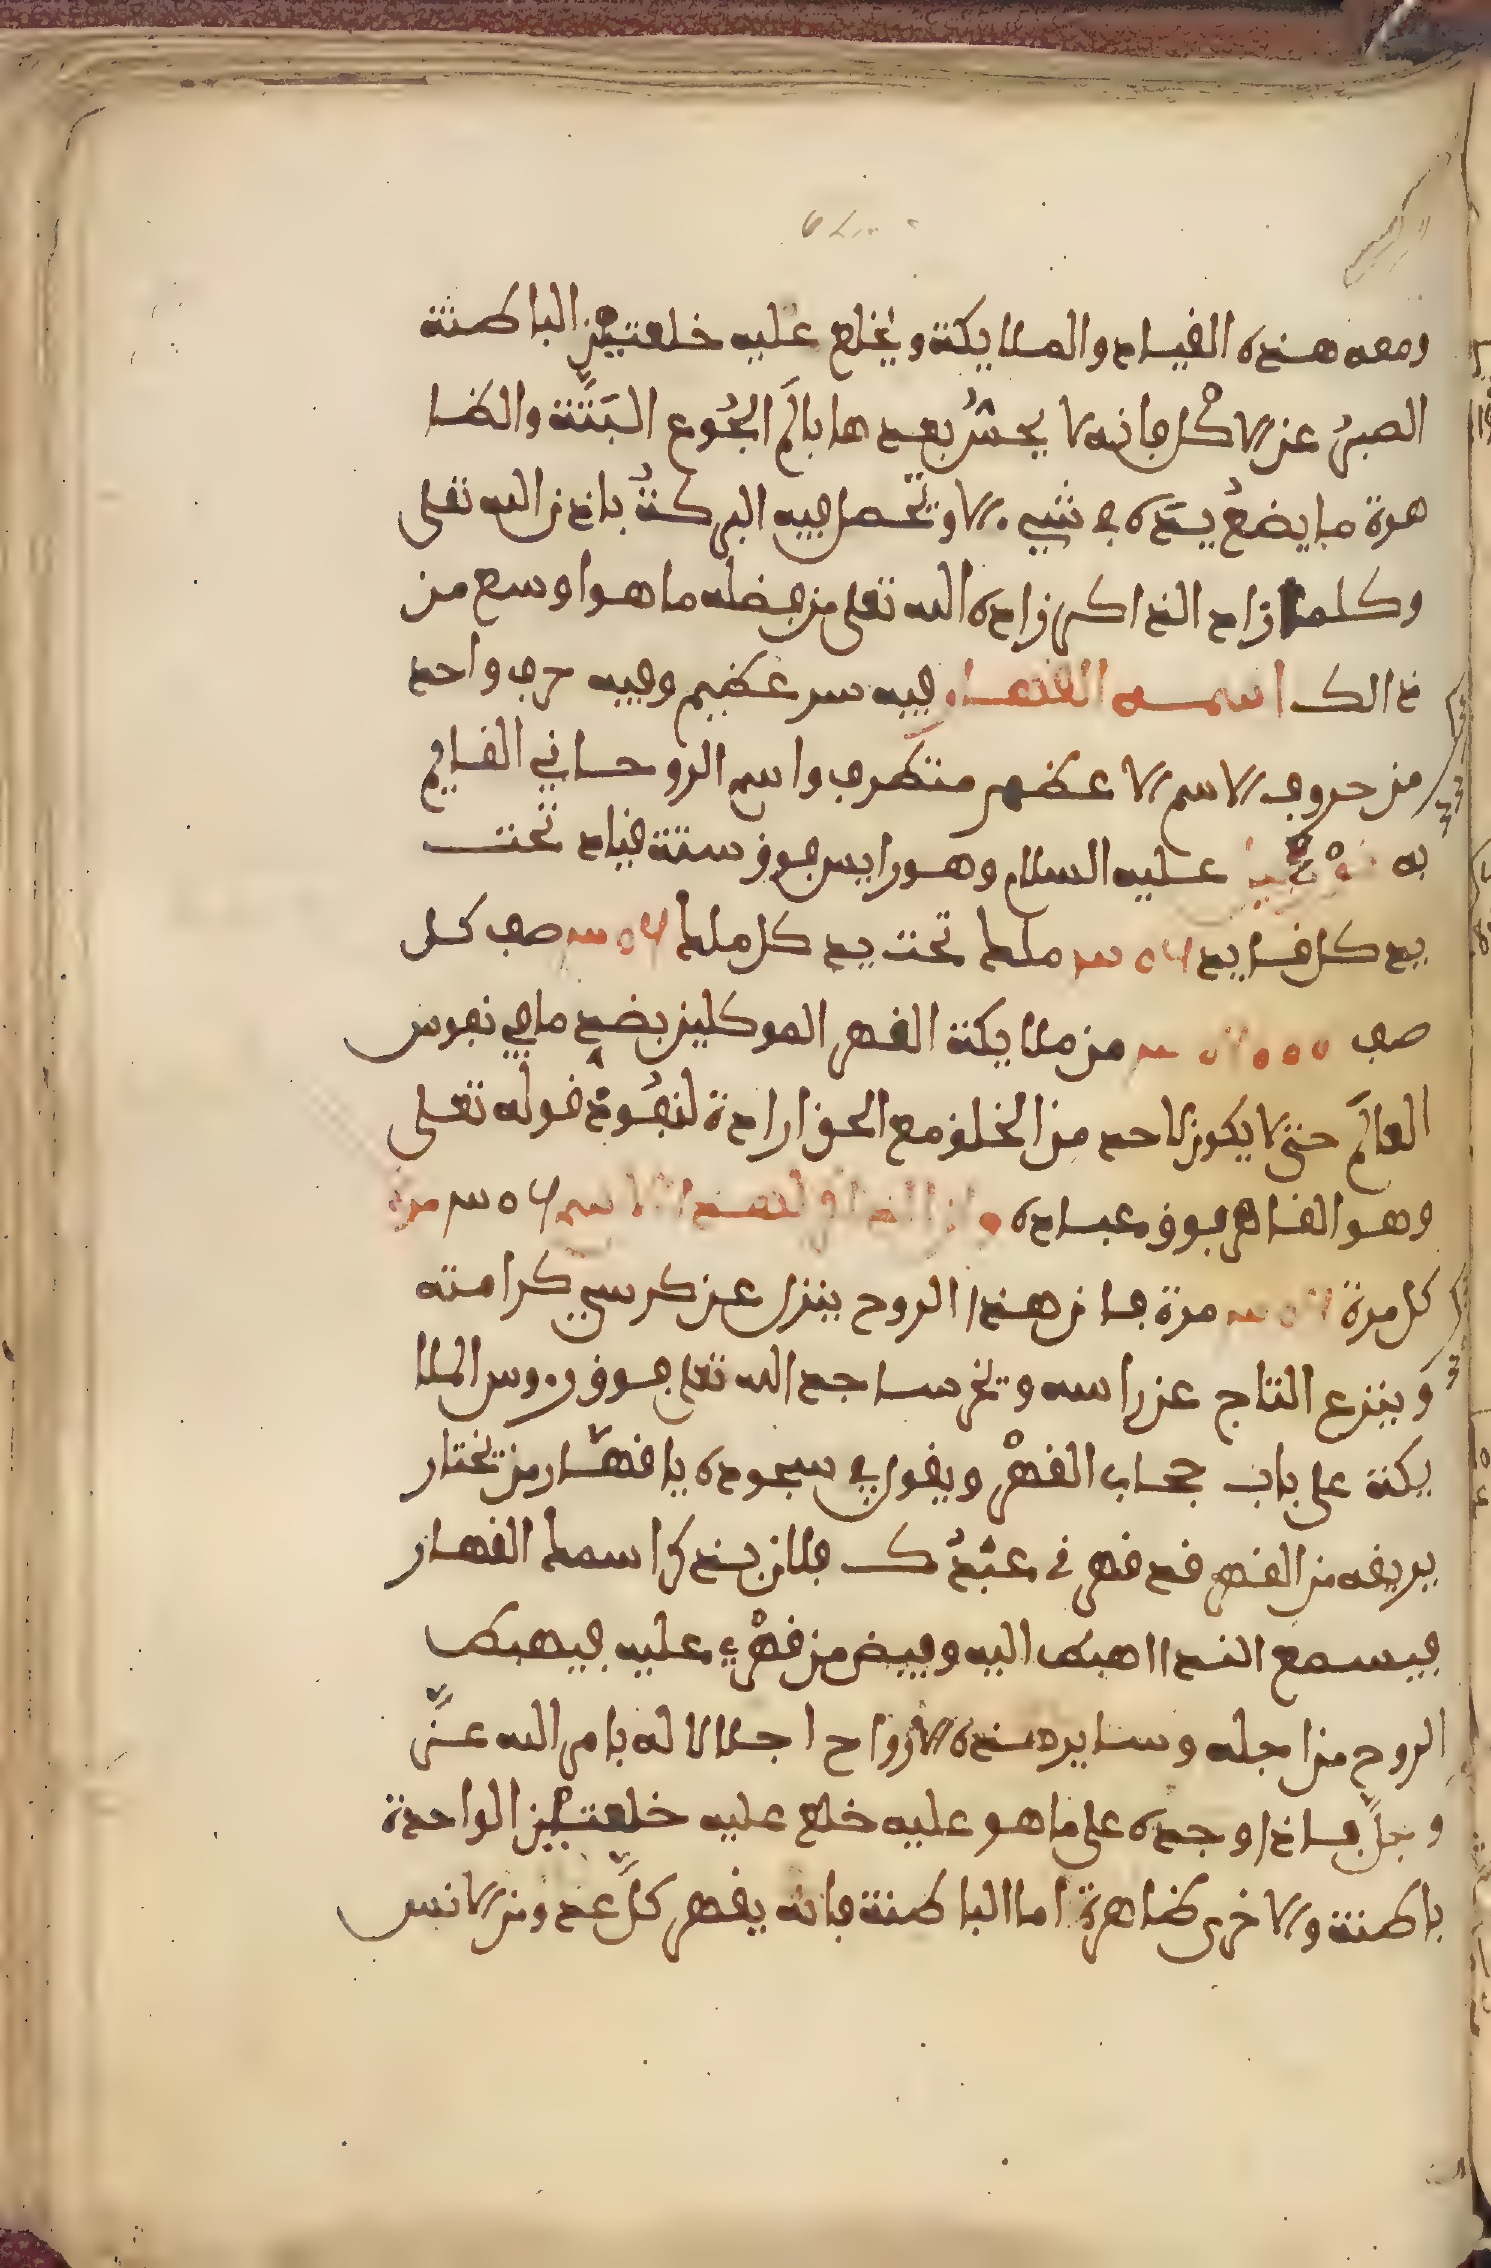 ومعه هذه القياد والملايكة ويخلع عليه خلعتين الباطنة
الصبر عن الاكل فانه لا يحس بعدها بالم الجوع البتة والظا
هرة ما يضع يده في شيء الا وتحصل فيه البركة باذن الله تعلى
وكلما زاد الذاكر زاده الله تعلى من فضله ما هو اوسع من
ذالك اسمه القهار فيه سر عظيم وفيه حرف واحد
من حروف الاسم الاعظم متطرف واسم الروحاني القايم
به عليه السلام وهو رايس فوق ستة قياد تحت
يد كل قايد ملك تحت يد كل ملك صف كل
صف من ملايكة القهر الموكلين بضد ما في نفوس
العالم حتى لا يكون لاحد من الخلق مع الحق ارادة لنفوذ قوله تعلى
وهو القاهر فوق عباده لهذا الاسم مرة
كل مرة مرة فان هذا الروح ينزل عن كرسي كرامته
وينزع التاج عن راسه ويخر ساجد الله تعلى فوق رءوس الملا
يكة على باب حجاب القهر ويقول في سجوده يا قهار من تختار
يريقه من القهر قد قهر في عبدك فلان بذكر اسمك القهار
فيسمع الندا اهبط اليه وفيض من قهري عليه فيهبط
الروح من اجله وساير هذه الارواح اجلالا له بامر الله عز
وجل فاذا وجده على ما هو عليه خلع عليه خلعتين الواحدة
باطنة والاخرى ظاهرة اما الباطنة فانه يقهر كل عدو من الانس